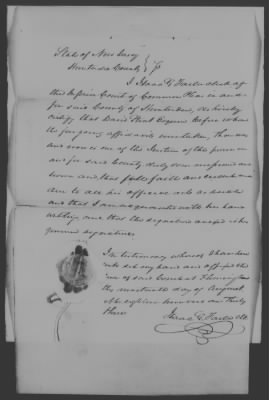 State of New Jersey
Hunterdon County } ss
I Isaac G. Farlee Clerk of
the Inferior Court of Common Pleas in and
for said County of Hunterdon, do hereby
certify that David Esquire before whom
the foregoing affidavit was taken, then was
and now is one of the Justices of the peace in
and for said County duly commissioned and
sworn and, that full faith and credit are
due to all his official acts as such
and that I am acquainted with his hand
writing and that the signature annexed is his
genuine signature
In testimony whereof I have here
unto set my hand and affixed the
seal of said Court at Flemington
the day of August
Eighteen hundred and Thirty
three
Isaac G. Farlee Clk